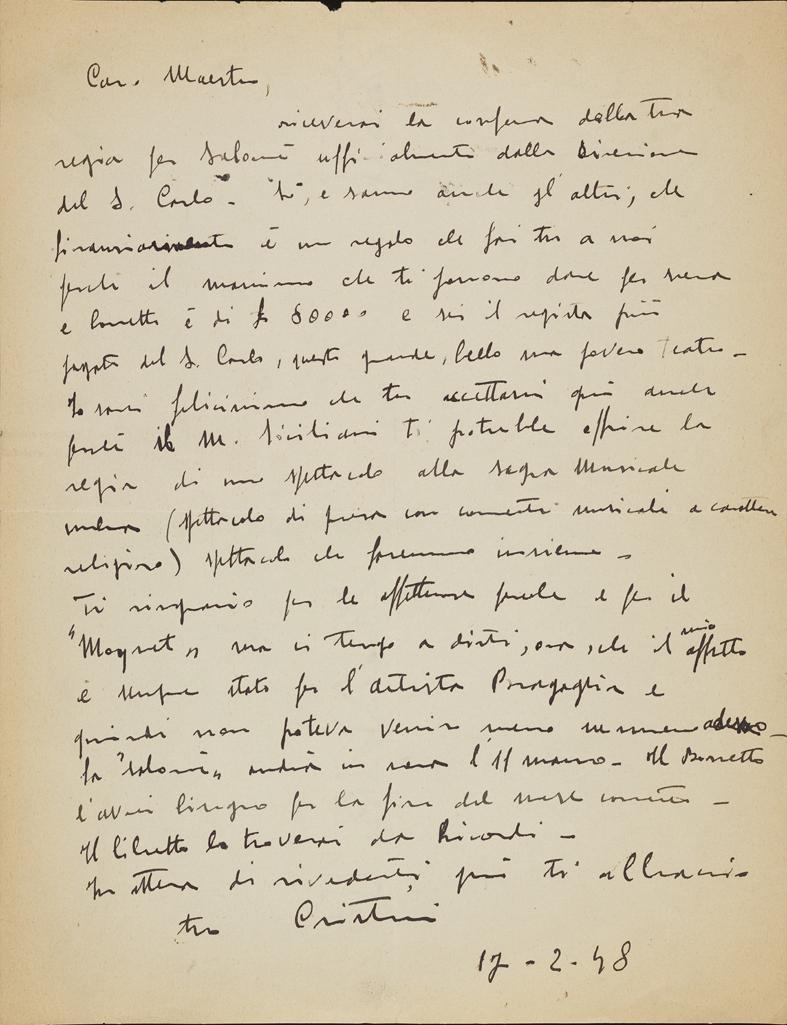 Caro Maestro,
riceverai la conferma della tua
regia per Salomè ufficialmente dalla Direzione
del S. Carlo - So, e sanno anche gl'altri, che
finanziariamente è un regalo che fai tu a noi
perchè il massimo che ti possono dare per scena
e bozzetto è di £ 80000 e sei il regista più
pagato del S. Carlo, questo grande, bello ma povero Teatro -
Io sarei felicissimo che tu accettassi qui anche
perchè il M. Siciliani ti potrebbe offrire la
regia di uno spettacolo alla sagra Musicale
umbra (spettacolo di prosa con commenti musicali a carattere
religioso) spettacolo che faremmo insieme -
Ti ringrazio per le affettuose parole e per il
"Magnet„ ma ci tengo a dirti, ora, che il mio affetto
è sempre stato per l'artista Bragaglia e
quindi non poteva venir meno nemmeno adesso -
La "Salomè„ andrà in scena l'11 marzo - Il Bozzetto
l'avrei bisogno per la fine del mese corrente -
Il libretto lo troverai da Ricordi -
In attesa di rivederti qui ti abbraccio
tuo Cristini
17 - 2 - 48